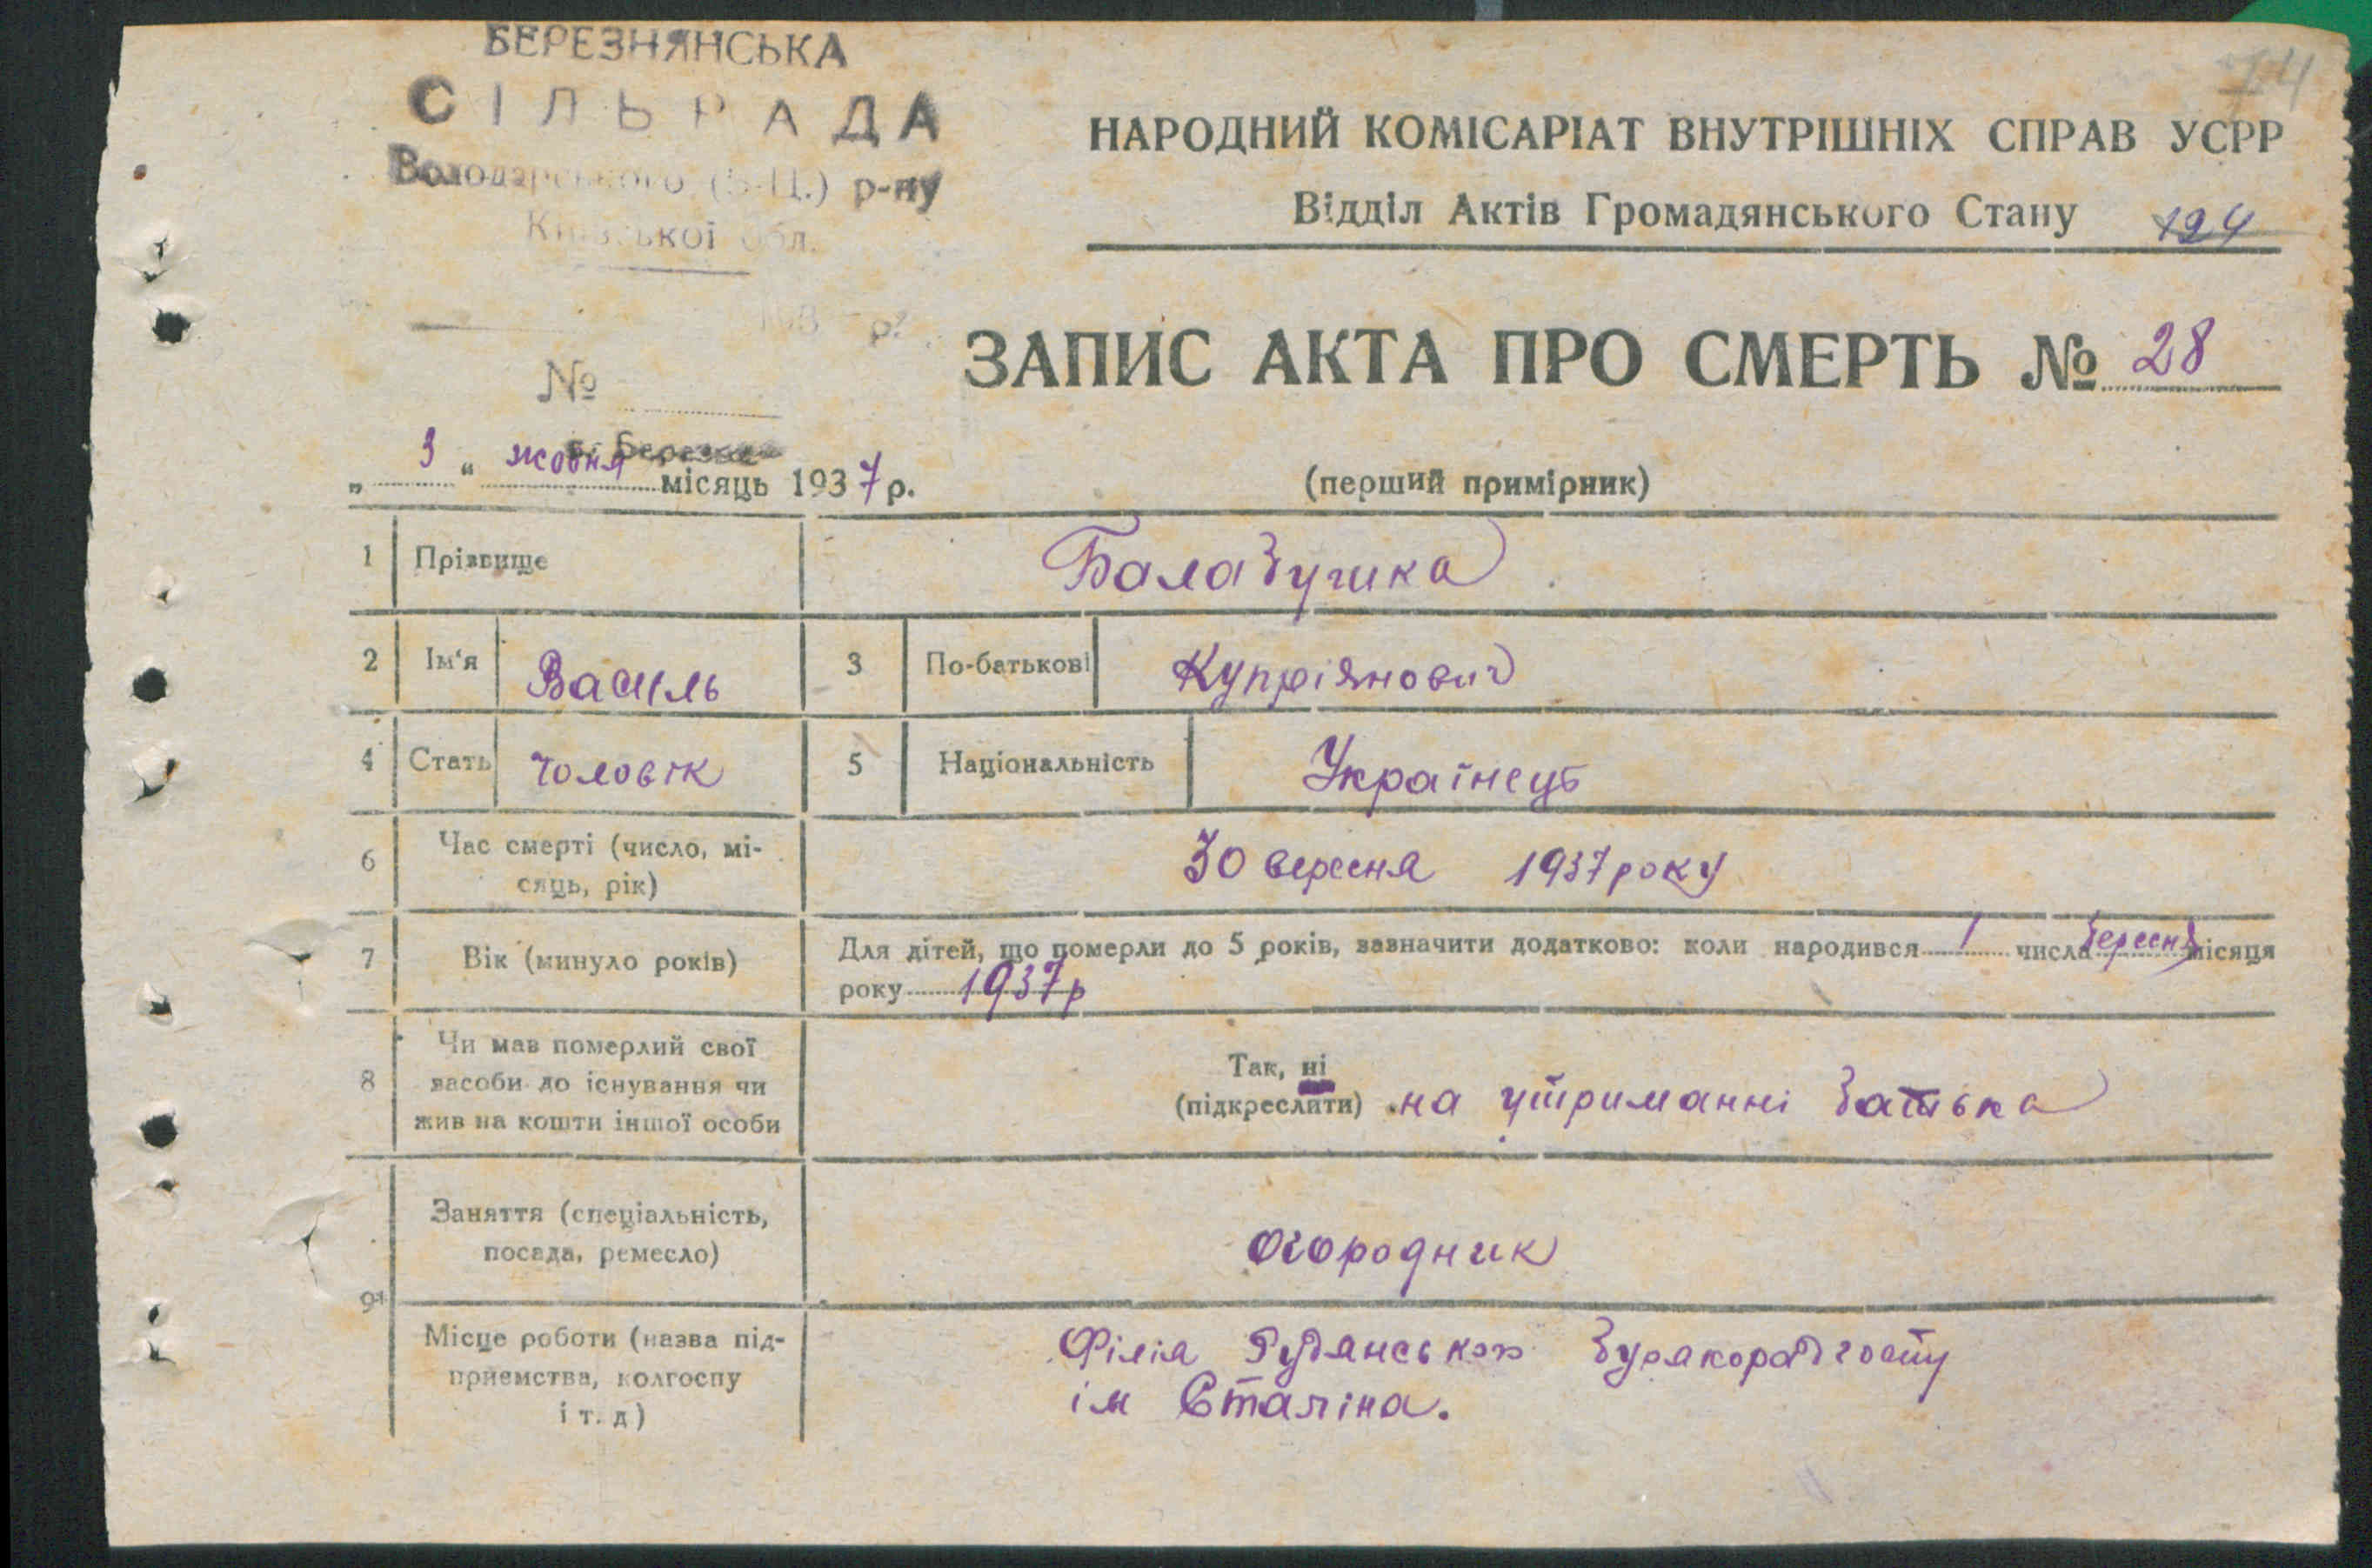 БЕРЕЗНЯНСЬКА
СІЛЬРАДА
Володарського (Б-Ц.) р-ну
Київської обл.
193 р.
№
74
НАРОДНИЙ КОМІСАРІАТ ВНУТРІШНІХ СПРАВ УСРР
Відділ Актів Громадянського Стану 124
ЗАПИС АКТА ПРО СМЕРТЬ № 28
„ 3 “ жовня місяць 1937 р.
(перший примірник)
1 Прізвище Балабушка
2 Ім'я Василь 3 По-батькові Купріянович
4 Стать чоловік 5 Національність Українець
6 Час смерті (число, мі-
сяць, рік) 30 вересня 1937 року
7 Вік (минуло років) Для дітей, що померли до 5 років, зазначити додатково: коли народився 1 числа вересня місяця
року 1937 р
8 Чи мав померлий свої
засоби до існування чи
жив на кошти іншої особи
Так, ні
(підкреслити) на утриманні батька
9 Заняття (спеціальність,
посада, ремесло) огородник
Місце роботи (назва під-
приємства, колгоспу
і т. д)
Філія Рудянського бурякорадгоспу
ім Сталіна.